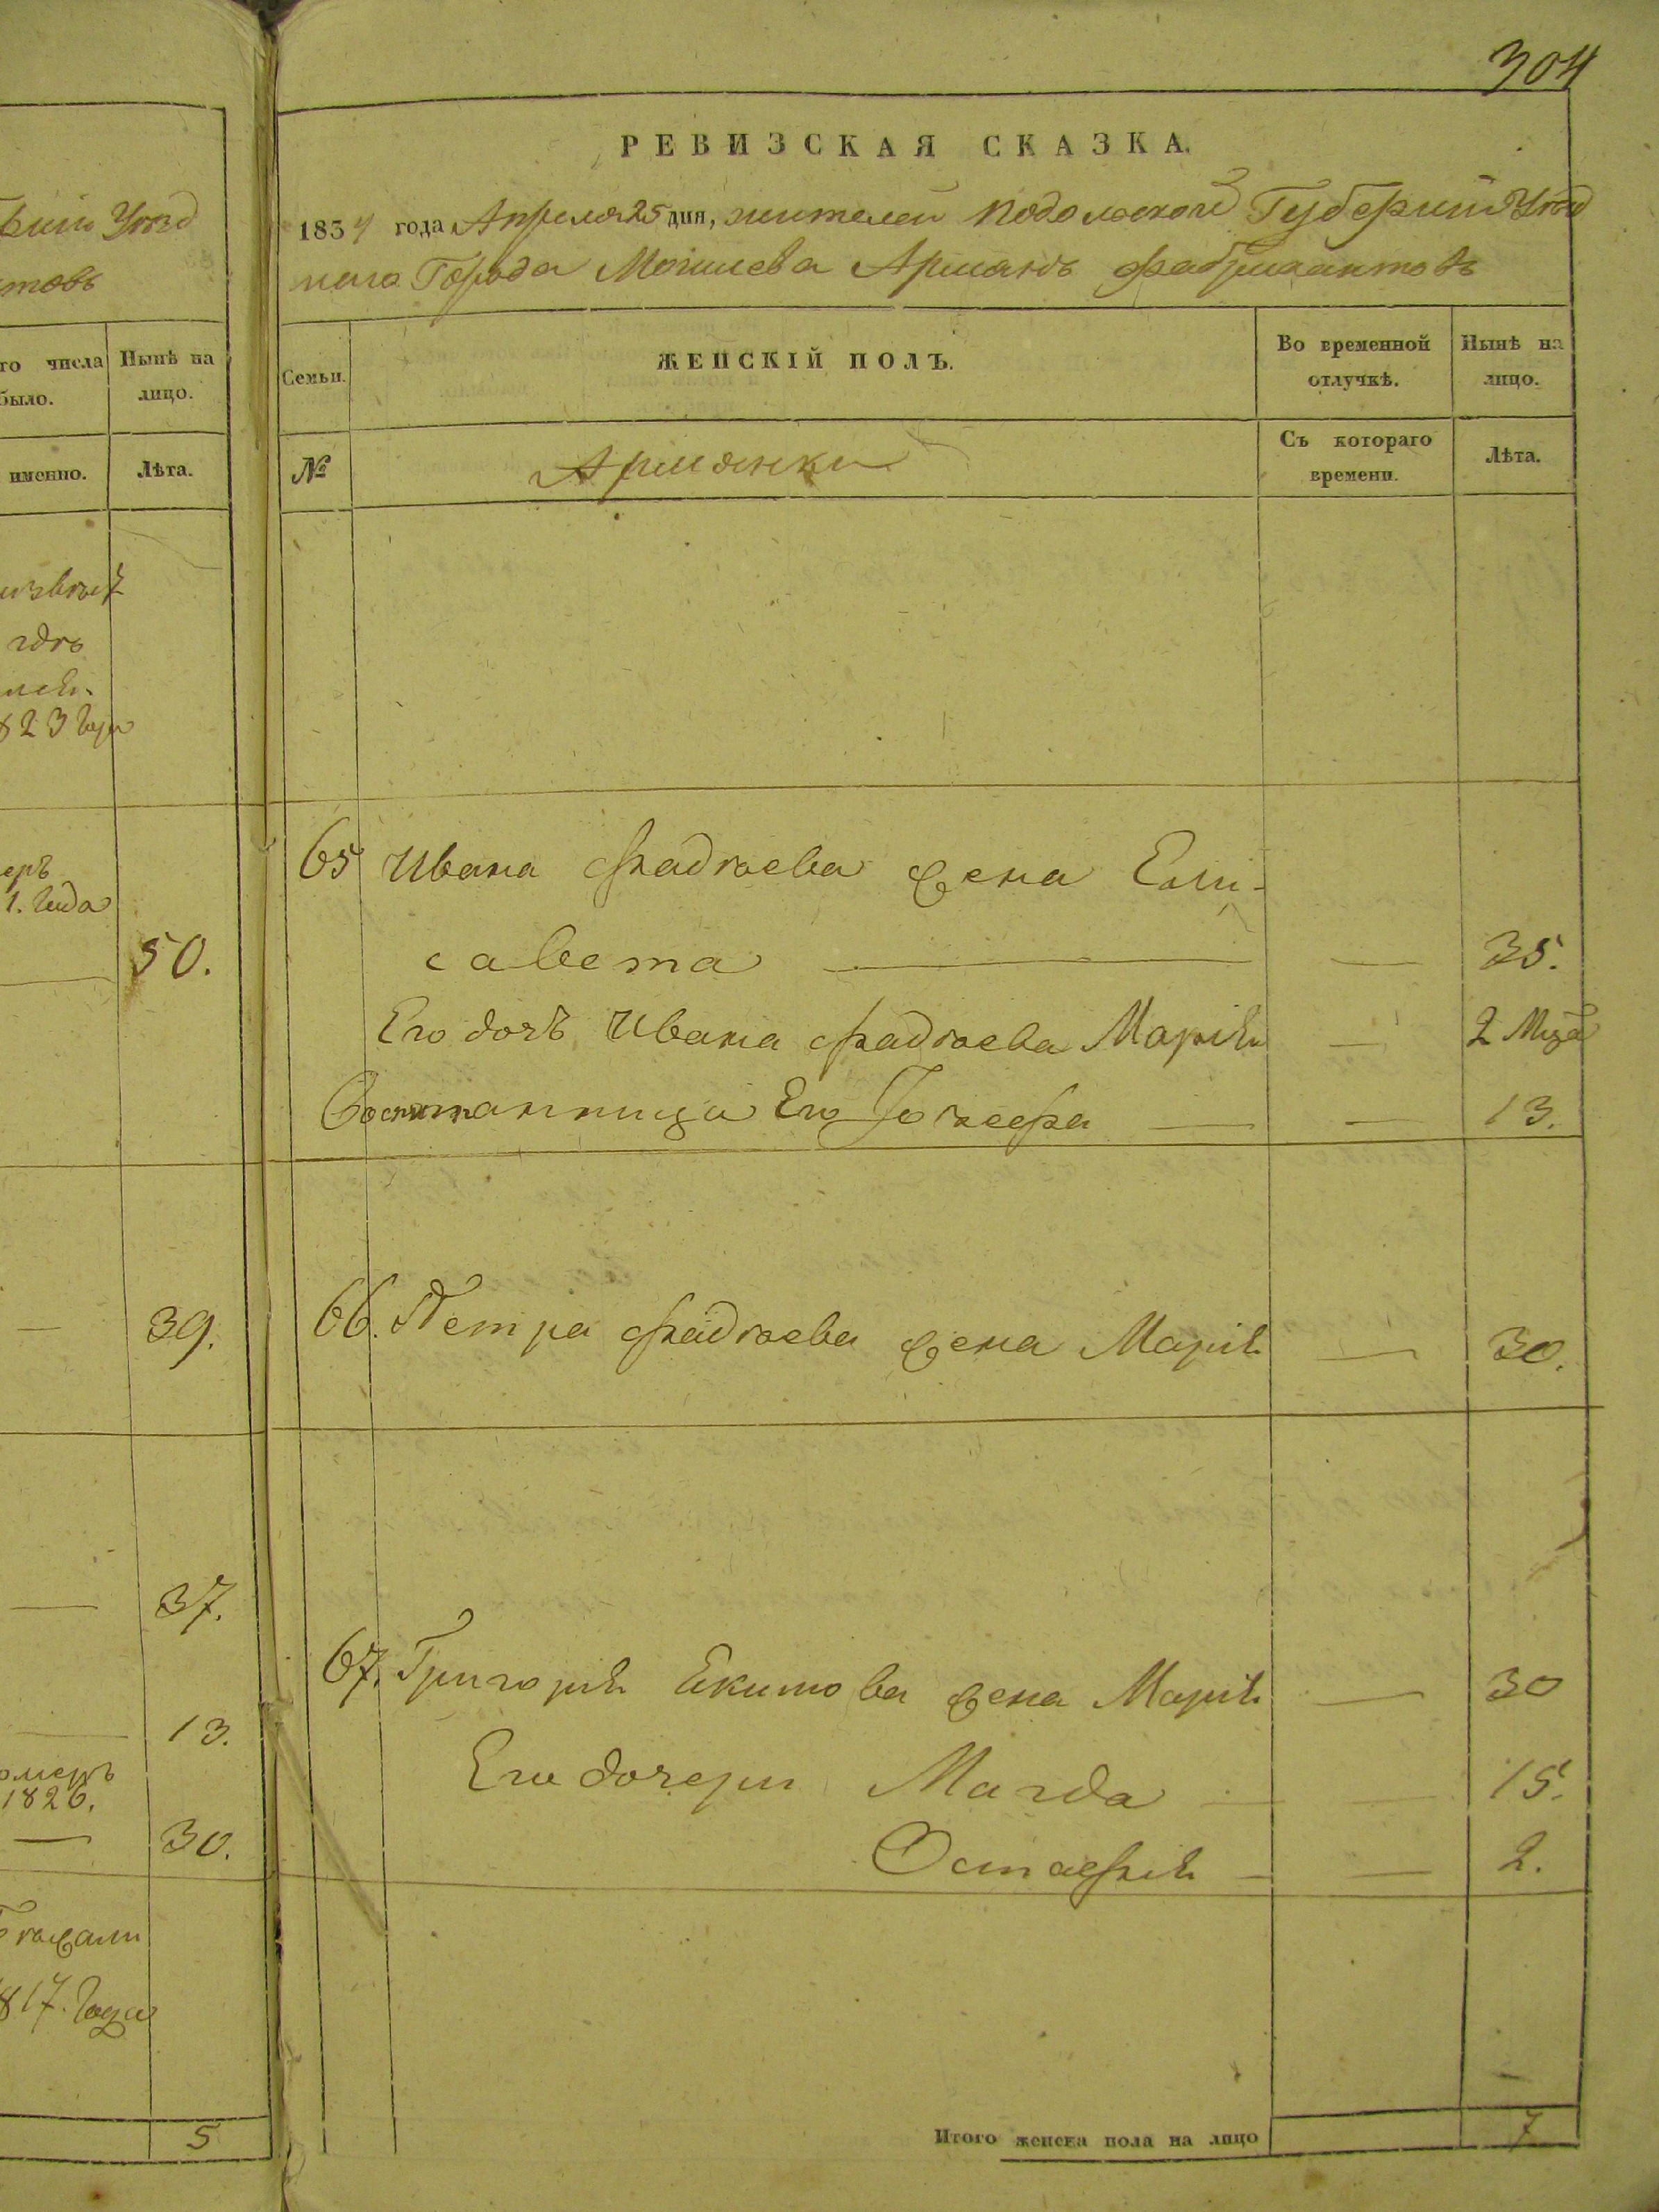 304
РЕВИЗСКАЯ СКАЗКА.
1834 года Апреля 25 дня, жителей Подольской Губернии Уезд
ного Города Могилева Армянъ
Уезд
го числа
было.
Нынѣ на
лицо.
именно.
Лѣта.
Семьи.
ЖЕНСКІЙ ПОЛЪ.
Во временной
отлучкѣ.
Нынѣ на
лицо.
№
Армянки
Съ котораго
времени.
Лѣта.
где
823 Года
1. Года
50.
65 Ивана Фадѣева жена Ели-
савета — — 35.
Его дочь Ивана Фадѣева Марія — 2 Мца
Воспитанница Его — — 13.
— 39.
66. Петра Фадѣева жена Марія — 30.
— 37.
67. Григорія Екимова жена Марія — 30
— 13.
Его дочери Магда — — 15.
1826.
— 30.
Остафія — — 2.
817. Года
5
Итого женска пола на лицо 7